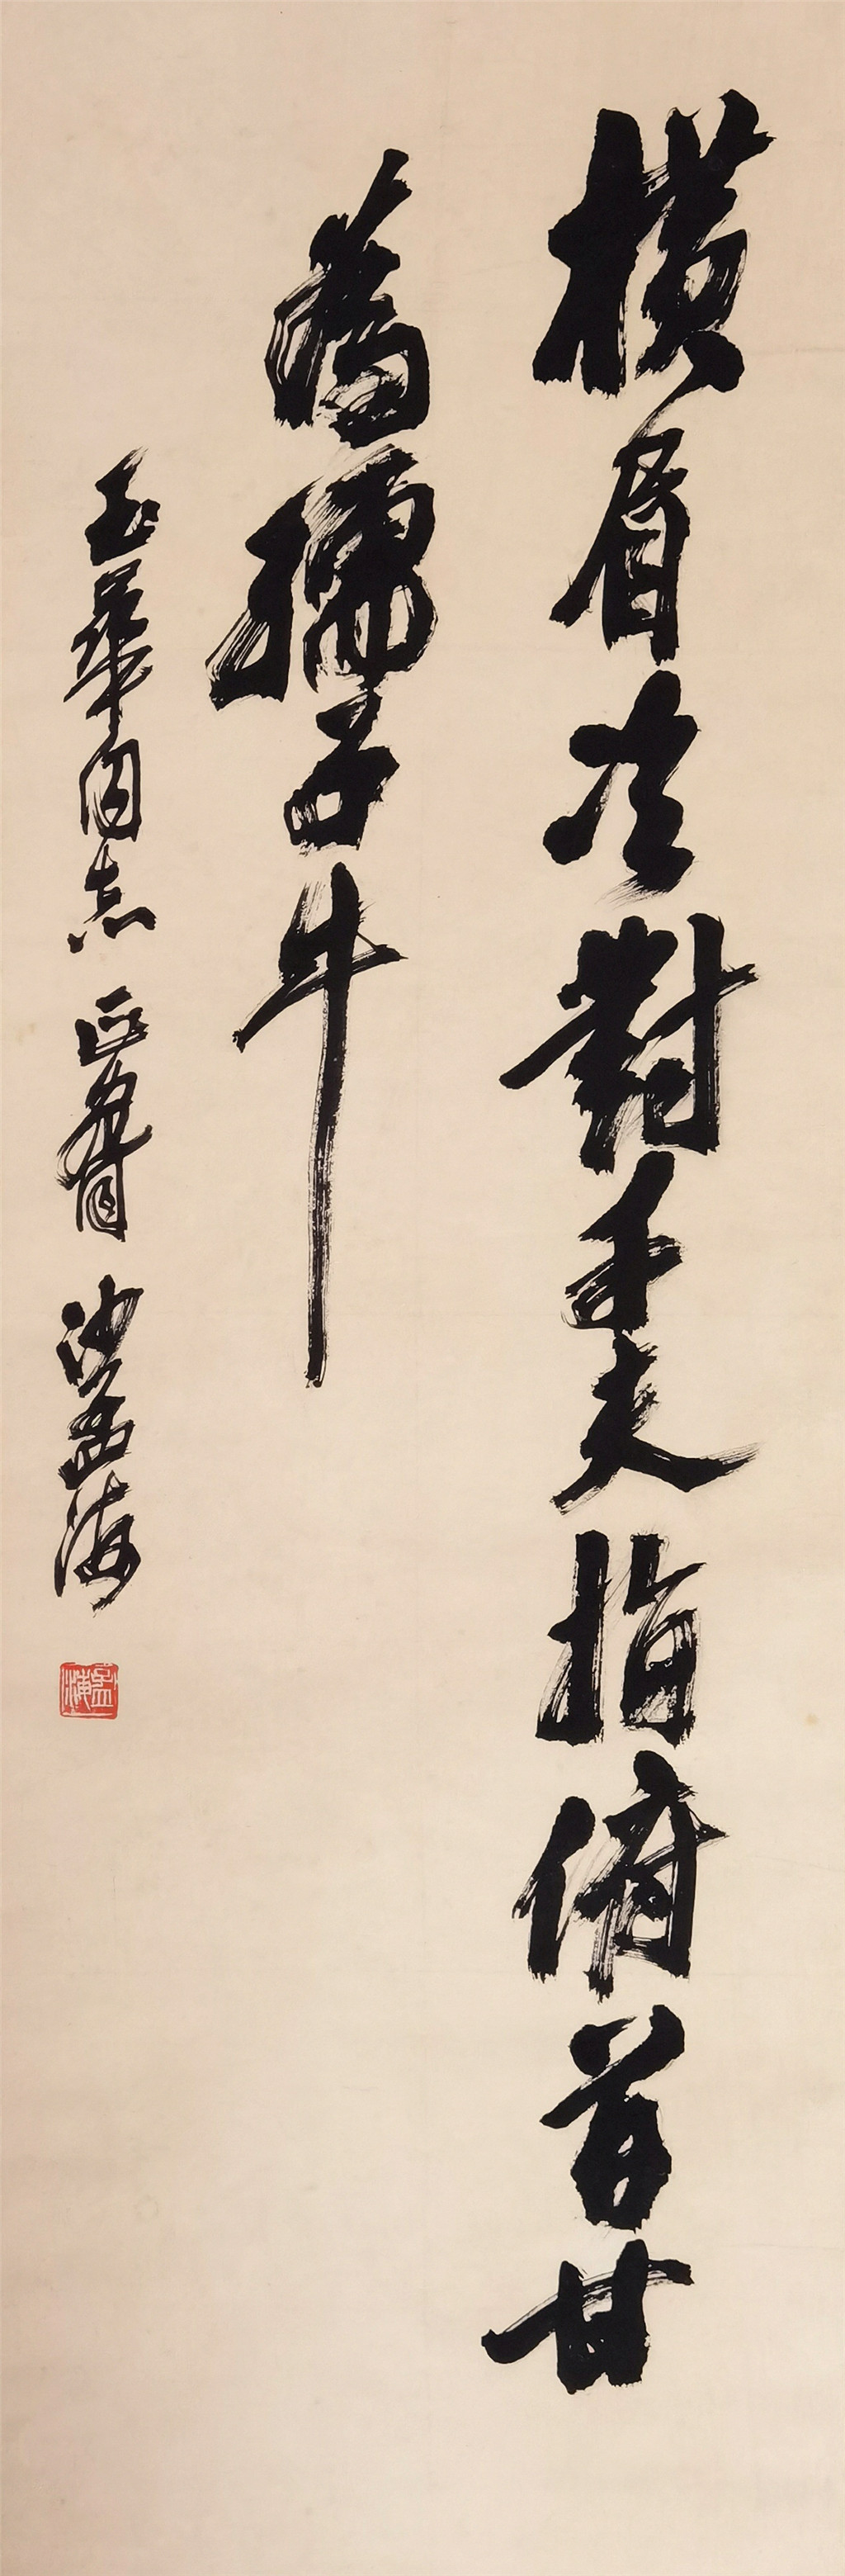 橫眉冷對千夫指俯首甘
爲孺子牛
玉華同志 正 沙孟海
孟海